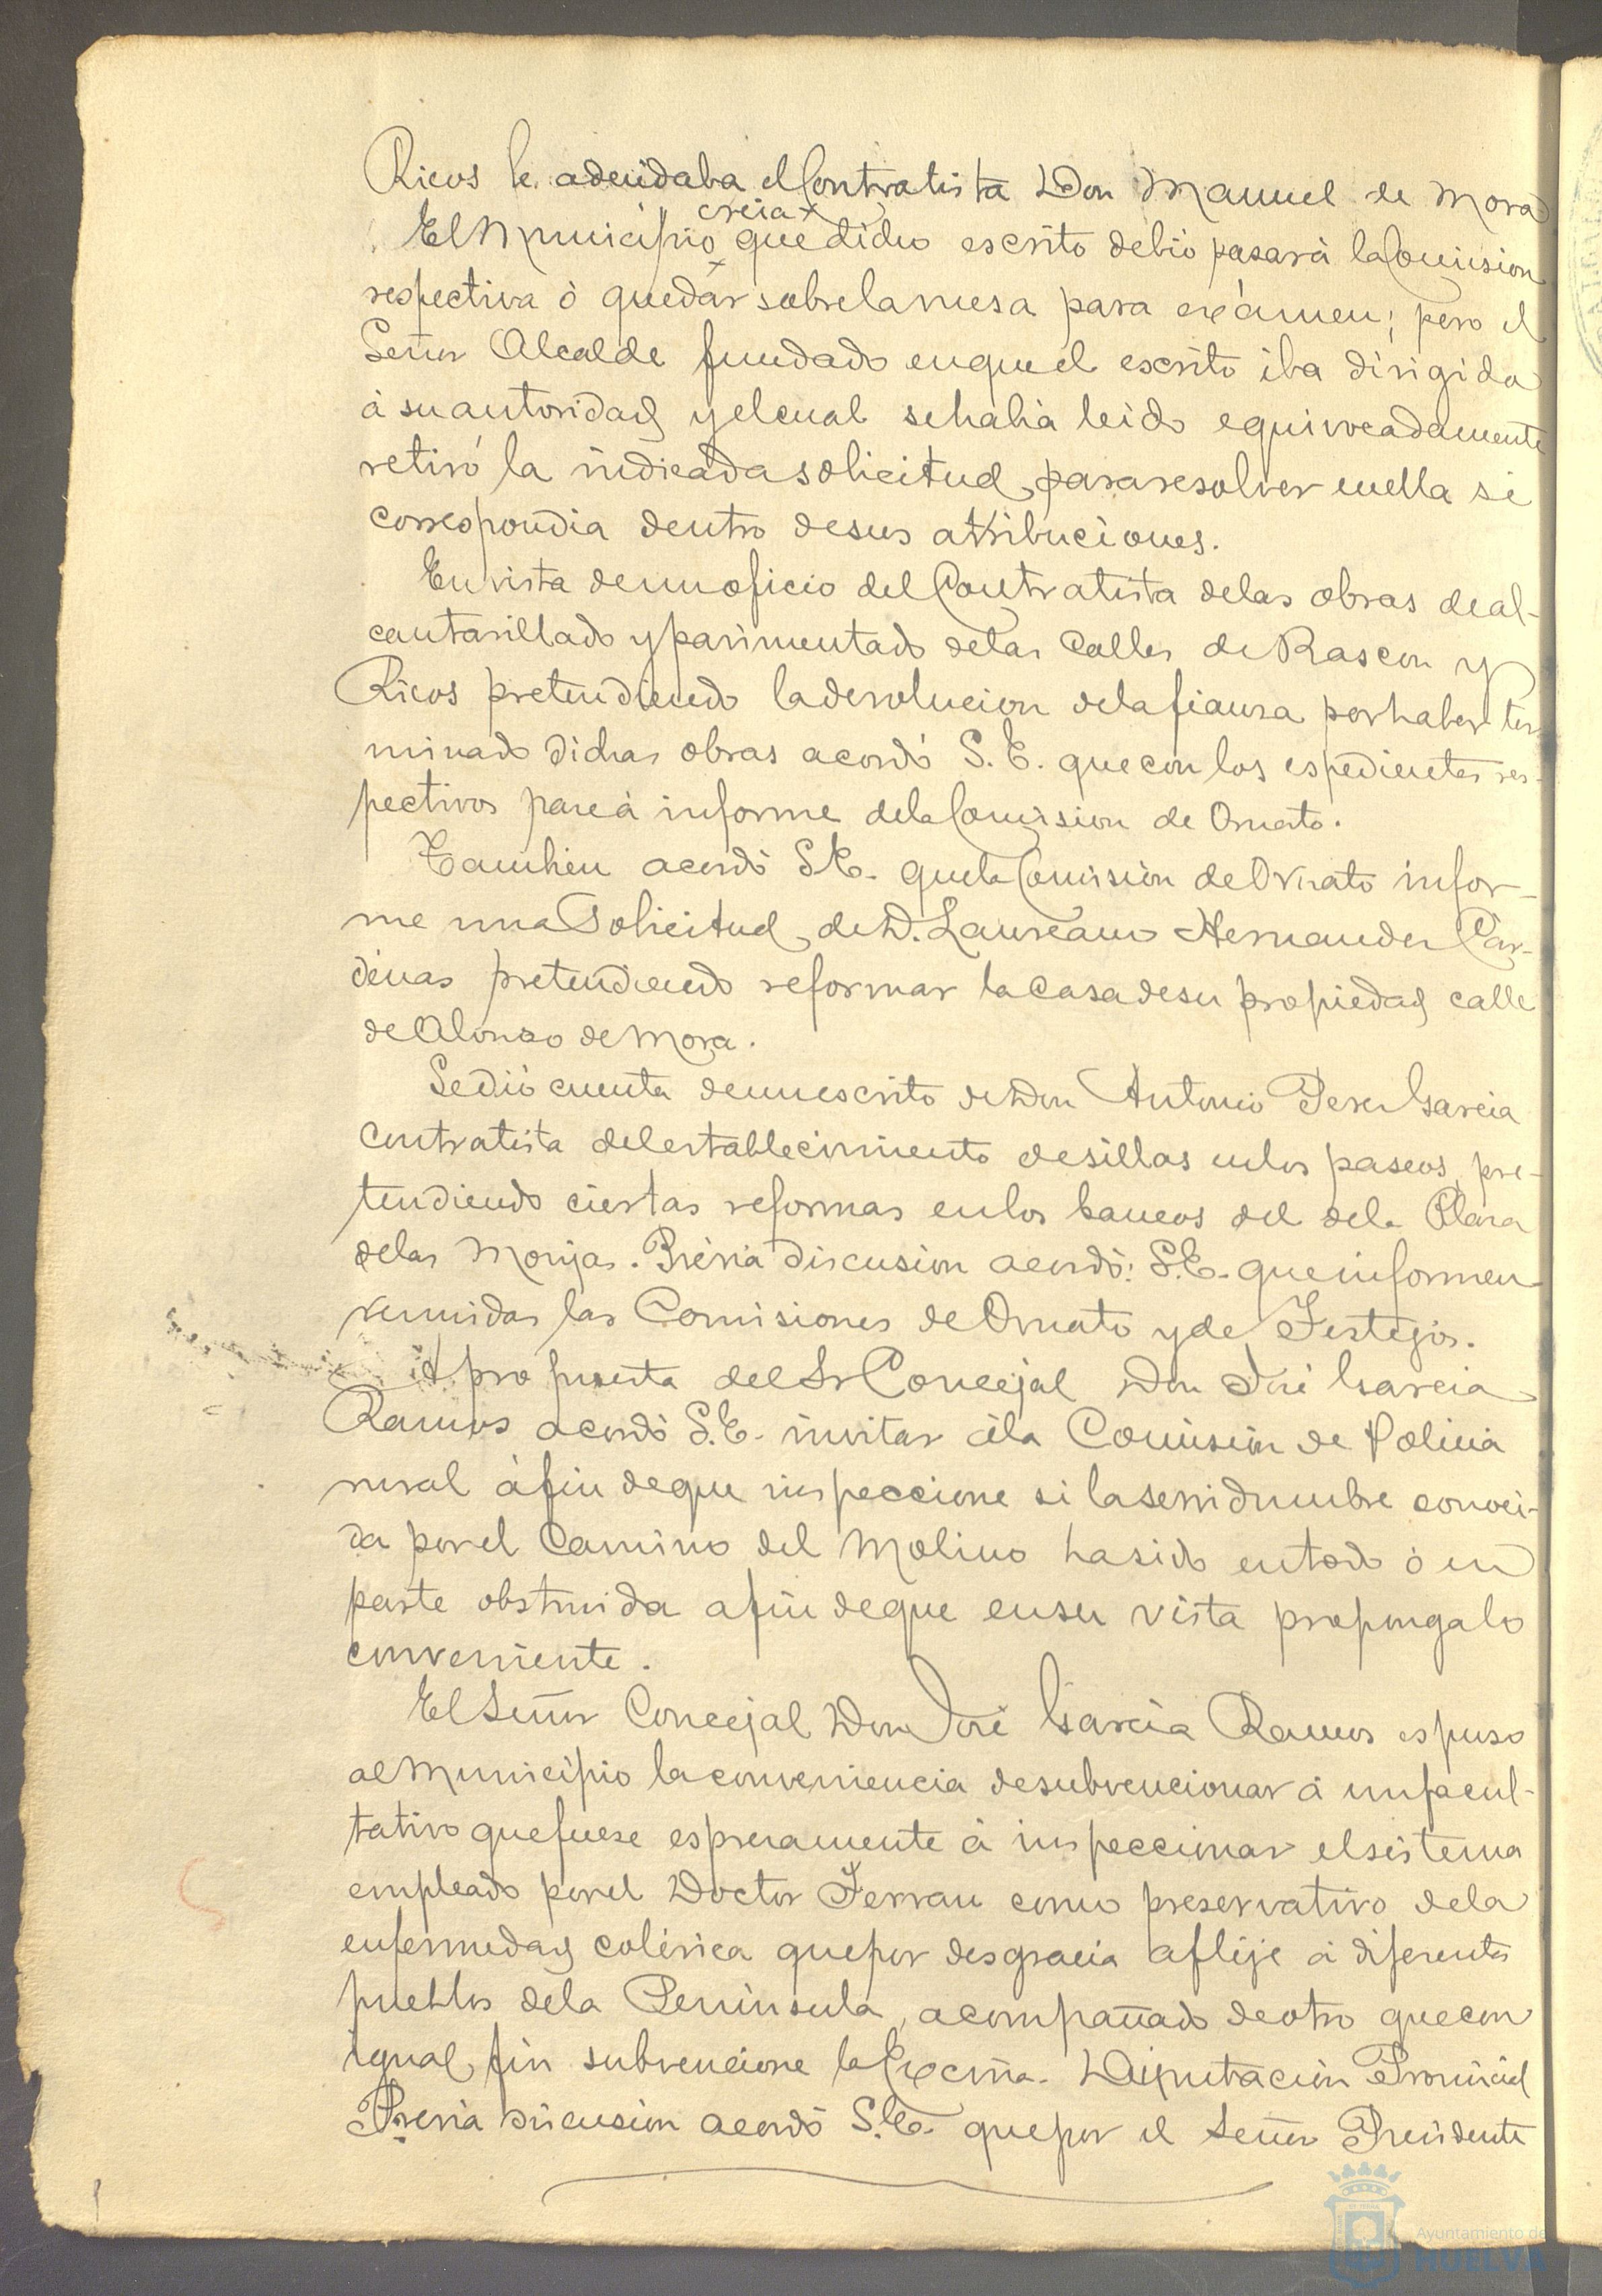 Ricos le adeudaba el Contratista Don Manuel de Mora
creia x
El Municipio x que dicho escrito debió pasar á la Comision
respectiva ó quedar sobre la mesa para exámen; pero el
Señor Alcalde fundado en que el escrito iba dirigido
á su autoridad y el cual se habia leido equivocadamente
retiró la indicada solicitud, para resolver en ella si
correspondia dentro de sus attribuciones.
En vista de un oficio del Contratista de las obras de al-
cantarillado y pavimentado de las Calles de Rascon y
Ricos pretendiendo la devolucion de la fianza por haber ter
minado dichas obras acordó S. E. que con los espedientes res-
pectivos pase á informe de la Comision de Ornato.
Tambien acordó S. E. que la Comision de Ornato infor-
me una Solicitud de D. Laureano Hernandez Cár-
denas pretendiendo reformar la Casa de su propiedad calle
de Alonso de Mora.
Se dió cuenta de un escrito de Don Antonio Perez Garcia
contratista del establecimiento de sillas en los paseos, pre-
tendiendo ciertas reformas en los bancos del de la Plaza
de las Monjas. Prévia discusion acordó: S. E. que informen
reunidas las Comisiones de Ornato y de Festejos.
A propuesta del Sr Concejal Don José Garcia
Ramos acordó S. E. invitar á la Comision de Policia
rural á fin de que inspeccione si la servidumbre conoci-
da por el Camino del Molino ha sido en todo ó en
parte obstruida a fin de que en su vista proponga lo
conveniente.
El Señor Concejal Don José Garcia Ramos espuso
al Municipio la conveniencia de subvencionar á un facul-
tativo que fuese espresamente á inspeccionar el sistema
empleado por el Doctor Ferran como preservativo de la
enfermedad colérica que por desgracia aflije á diferentes
pueblos de la Peninsula, acompañado de otro que con
igual fin subvencione la Excma. Diputacion Provincial
Previa discusion acordó S. E. que por el Señor Presidente
Ayuntamiento de
HUELVA